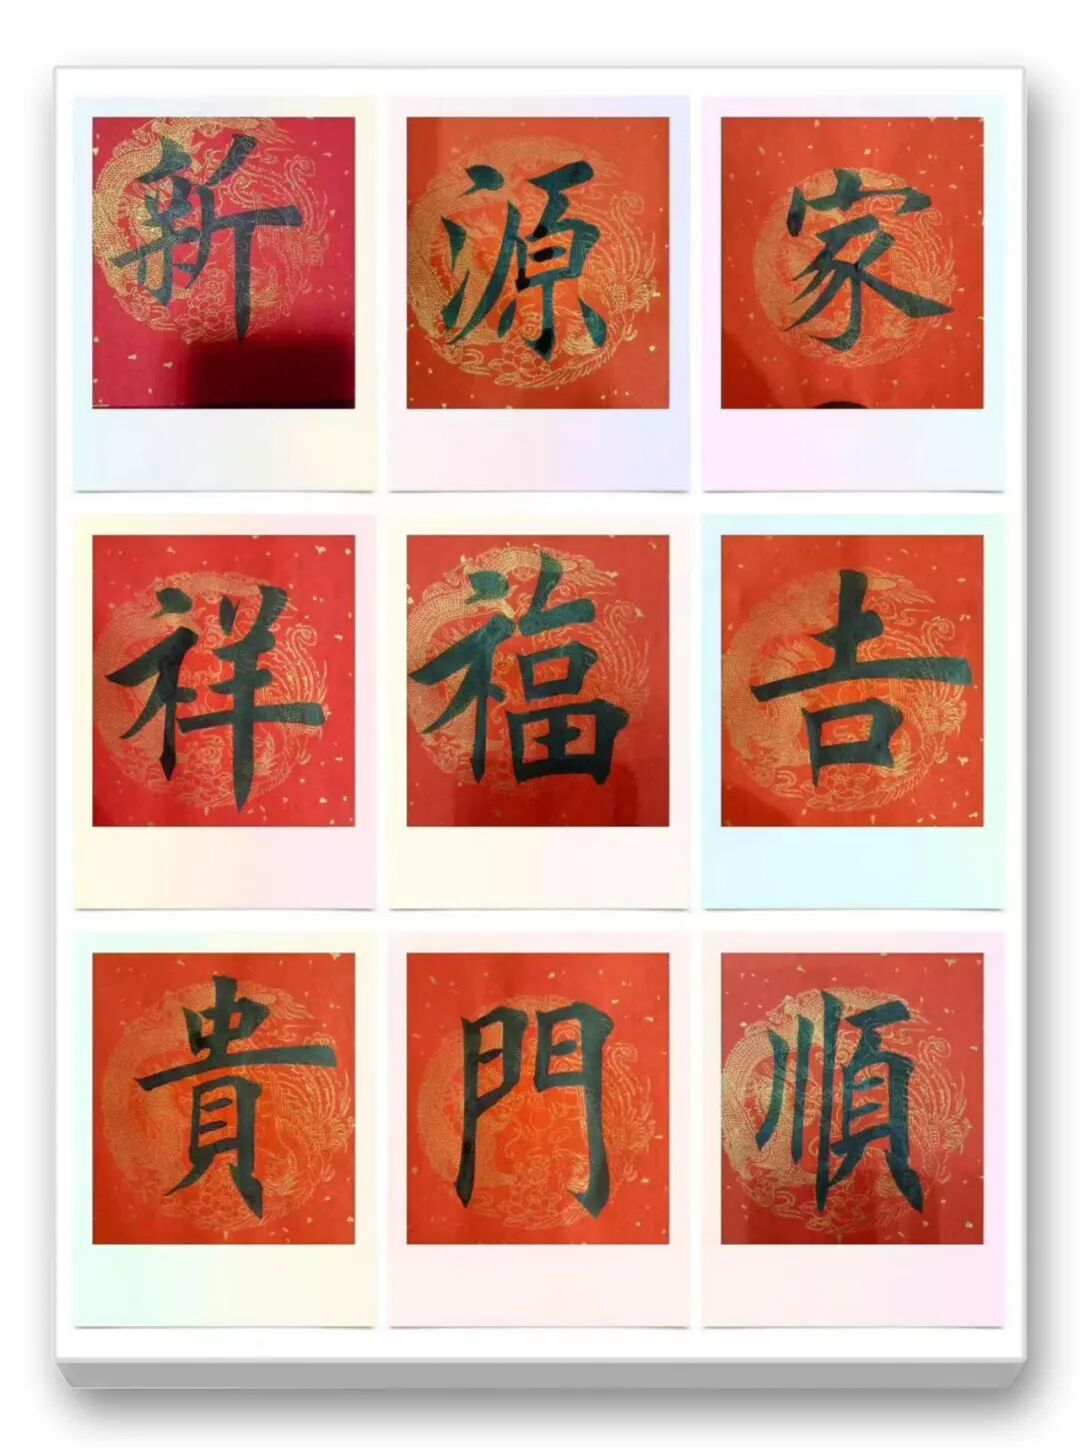 新 源 家
祥 福 吉
貴 門 順